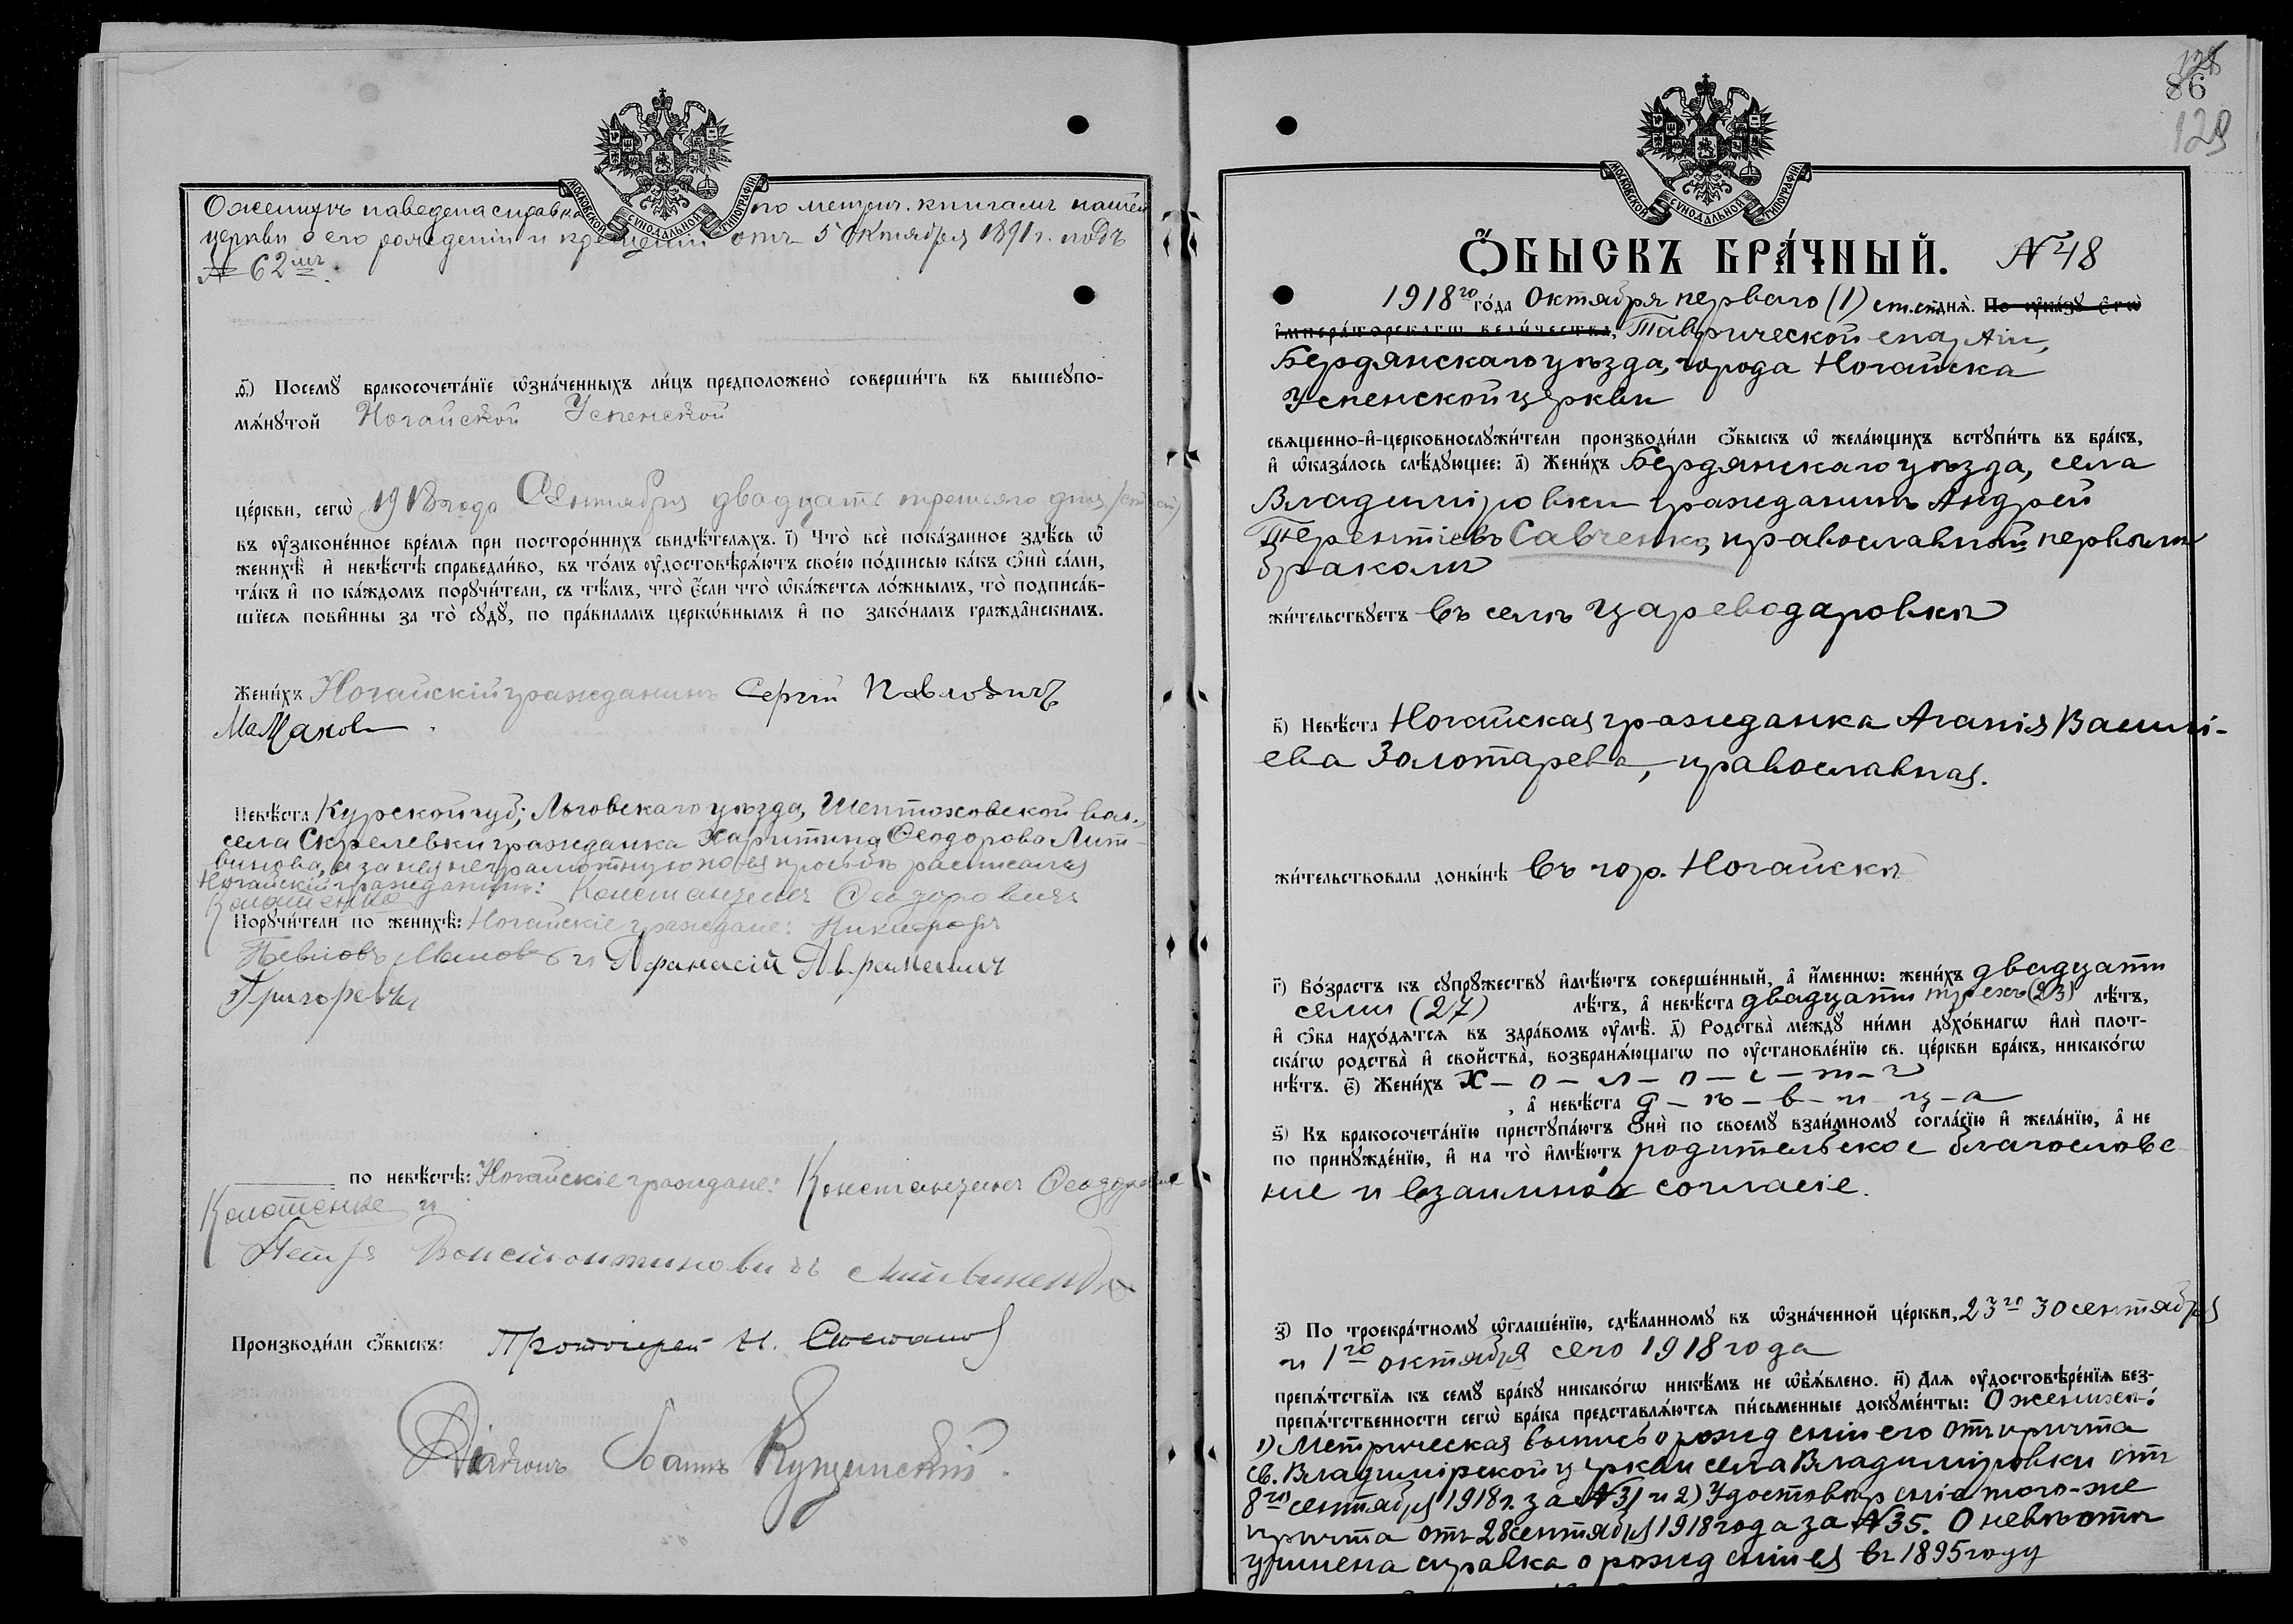 МОСКОВСКОЙ СѴНОДАЛЬНОЙ ТИПОГРАФІИ.
О женихѣ наведена справка по метрич. книгамъ нашей
церкви о его рожденіи и крещеніи отъ 5 октября 1891 г. подъ
№ 62мъ.
ѳ҃) Посемꙋ бракосочета́нїе ѡ҆зна́ченныхъ ли́цъ предположено̀ соверши́ть въ вышеꙋпо-
мѧ́нꙋтой Ногайской Успенской
це́ркви, сегѡ̀ 1918 года Сентября двадцать третьяго дня
въ ᲂу҆законе́нное вре́мѧ при посторо́ннихъ свидѣ́телѧхъ. і҃) Что̀ всѐ пока́занное здѣ́сь ѡ҆
женихѣ̀ и҆ невѣ́стѣ справедли́во, въ то́мъ ᲂу҆достовѣрѧ́ютъ свое́ю по́дписью ка́къ ѻ҆нѝ са́ми,
та́къ и҆ по ка́ждомъ порꙋчи́тели, съ тѣ́мъ, что̀ є҆́сли что̀ ѡ҆ка́жетсѧ ло́жнымъ, то̀ подписа́в-
шїесѧ пови́нны за то̀ сꙋдꙋ̀, по пра́виламъ церкѡ́внымъ и҆ по зако́намъ гражда́нскимъ.
Жени́хъ Ногайскій гражданинъ Сергій Павловичъ
Невѣ́ста Курской губ., Льговскаго уѣзда, Шептоховской вол.,
села Скрелевки гражданка Харитина Ѳеодорова Лит-
винова, а за нея неграмотную по ея просьбѣ расписался
Ногайскій гражданинъ: Константинъ Ѳеодоровичъ
Порꙋчи́тели по женихѣ̀: Ногайскіе граждане: Никифоръ
Павловъ и Афанасій Аврамовичъ
по невѣ́стѣ: Ногайскіе граждане: Константинъ Ѳеодоровичъ
и
Петръ Константиновичъ Литвиненко
Производи́ли ѻ҆́быскъ: Протоіерей Н.
Діаконъ Іоаннъ
128
86
129
МОСКОВСКОЙ СѴНОДАЛЬНОЙ ТИПОГРАФІИ.
Ѻ҆́БЫСКЪ БРА́ЧНЫЙ. № 48
1918го го́да Октября перваго (1) ст. ст. днѧ̀. По ᲂу҆ка́зꙋ є҆гѡ̀
і҆мпера́торскагѡ вели́чества, Таврической епархіи,
Бердянскаго уѣзда, города Ногайска
Успенской церкви
свѧще́нно-и҆-церковнослꙋжи́тели производи́ли ѻ҆́быскъ ѡ҆ жела́ющихъ встꙋпи́ть въ бра́къ,
и҆ ѡ҆каза́лось слѣ́дꙋющее: а҃) Жени́хъ Бердянскаго уѣзда, села
Владиміровки гражданинъ Андрей
Терентіевъ Савченко, православный, первымъ
бракомъ
жи́тельствꙋетъ въ селѣ Цареводаровкѣ
в҃) Невѣ́ста Ногайская гражданка Агапія Василі-
ева Золотарева, православная.
жи́тельствовала доны́нѣ въ гор. Ногайскѣ
г҃) Во́зрастъ къ сꙋпрꙋ́жествꙋ и҆мѣ́ютъ соверше́нный, а҆ и҆́меннѡ: жени́хъ двадцати
семи (27) лѣ́тъ, а҆ невѣ́ста двадцати трехъ (23) лѣ́тъ,
и҆ ѻ҆́ба нахо́дѧтсѧ въ здра́вомъ ᲂу҆мѣ̀. д҃) Родства̀ междꙋ̀ ни́ми дꙋхо́внагѡ и҆лѝ плот-
ска́гѡ родства̀ и҆ свойства̀, возбранѧ́ющагѡ по ᲂу҆становле́нїю св. це́ркви бра́къ, никако́гѡ
нѣ́тъ. є҃) Жени́хъ х – о – л – о – с – т – ъ
, а҆ невѣ́ста д – ѣ – в – и – ц – а
ѕ҃) Къ бракосочета́нїю пристꙋпа́ютъ ѻ҆нѝ по своемꙋ̀ взаи́мномꙋ согла́сїю и҆ жела́нїю, а҆ не
по принꙋжде́нїю, и҆ на то̀ и҆мѣ́ютъ родительское благослове-
ніе и взаимное согласіе.
з҃) По троекра́тномꙋ ѡ҆глаше́нїю, сдѣ́ланномꙋ въ ѡ҆зна́ченной це́ркви, 23го 30 сентября
и 1го октября сего 1918 года
препѧ́тствїѧ къ семꙋ̀ бра́кꙋ никако́гѡ никѣ́мъ не ѡ҆б̾ѧ́влено. и҃) Длѧ̀ ᲂу҆достовѣре́нїѧ без-
препѧ́тственности сегѡ̀ бра́ка представлѧ́ютсѧ пи́сьменные докꙋме́нты: О женихѣ:
1) Метрическая выпись о рожденіи его отъ причта
св. Владимірской церкви села Владиміровки отъ
8го сентября 1918 г. за № 31 и 2) Удостовѣреніе того-же
причта отъ 28 сентября 1918 года за № 35. О невѣстѣ
учинена справка о рожденіи ея въ 1895 году